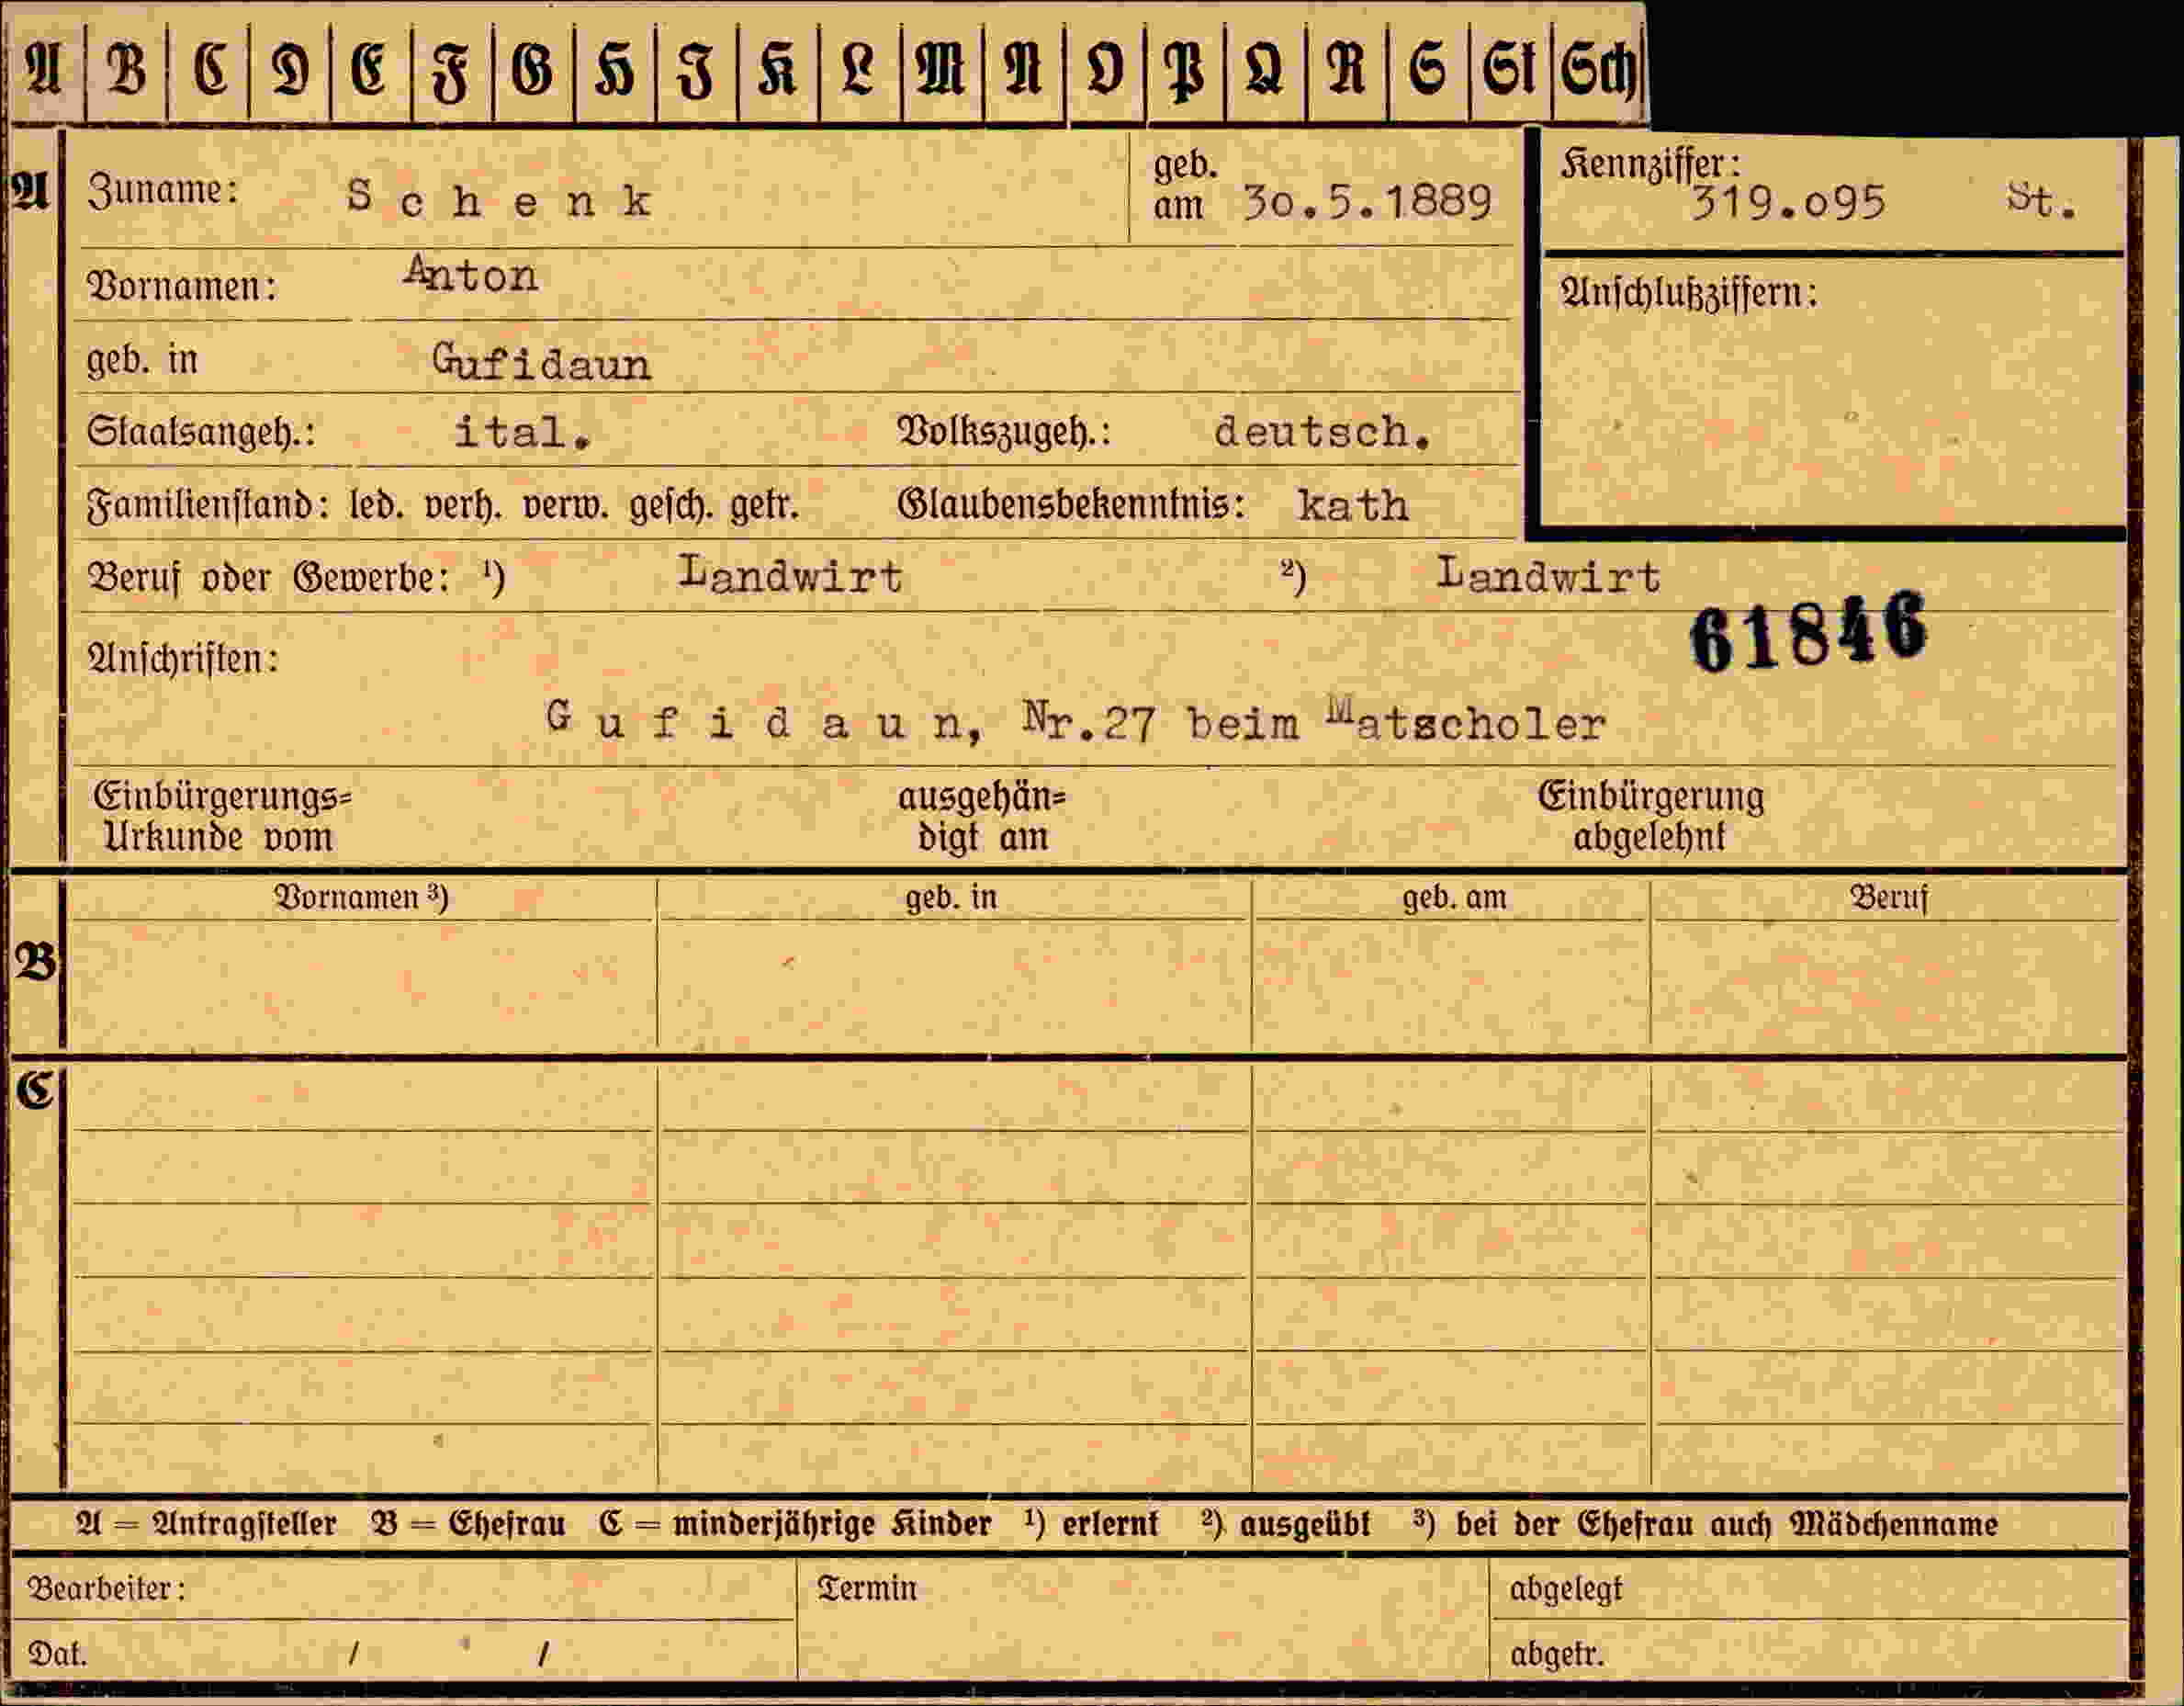 A B C D E F G H I K L M N O P Q R S St Sch
A
Zuname: Schenk
geb. am 30.5.1889
Kennziffer: 319.095 St.
Vornamen: Anton
Anschlußziffern:
geb. in Gufidaun
Staatsangeh.: ital. Volkszugeh.: deutsch.
Familienstand: led. verh. verw. gesch. getr. Glaubensbekenntnis: kath
Beruf oder Gewerbe: ¹) Landwirt ²) Landwirt
61846
Anschriften:
Gufidaun, Nr.27 beim Matscholer
Einbürgerungs=
Urkunde vom
ausgehän=
digt am
Einbürgerung
abgelehnt
B
Vornamen ³) geb. in geb. am Beruf
C
A = Antragsteller B = Ehefrau C = minderjährige Kinder ¹) erlernt ²) ausgeübt ³) bei der Ehefrau auch Mädchenname
Bearbeiter: Termin abgelegt
Dat. / / abgetr.